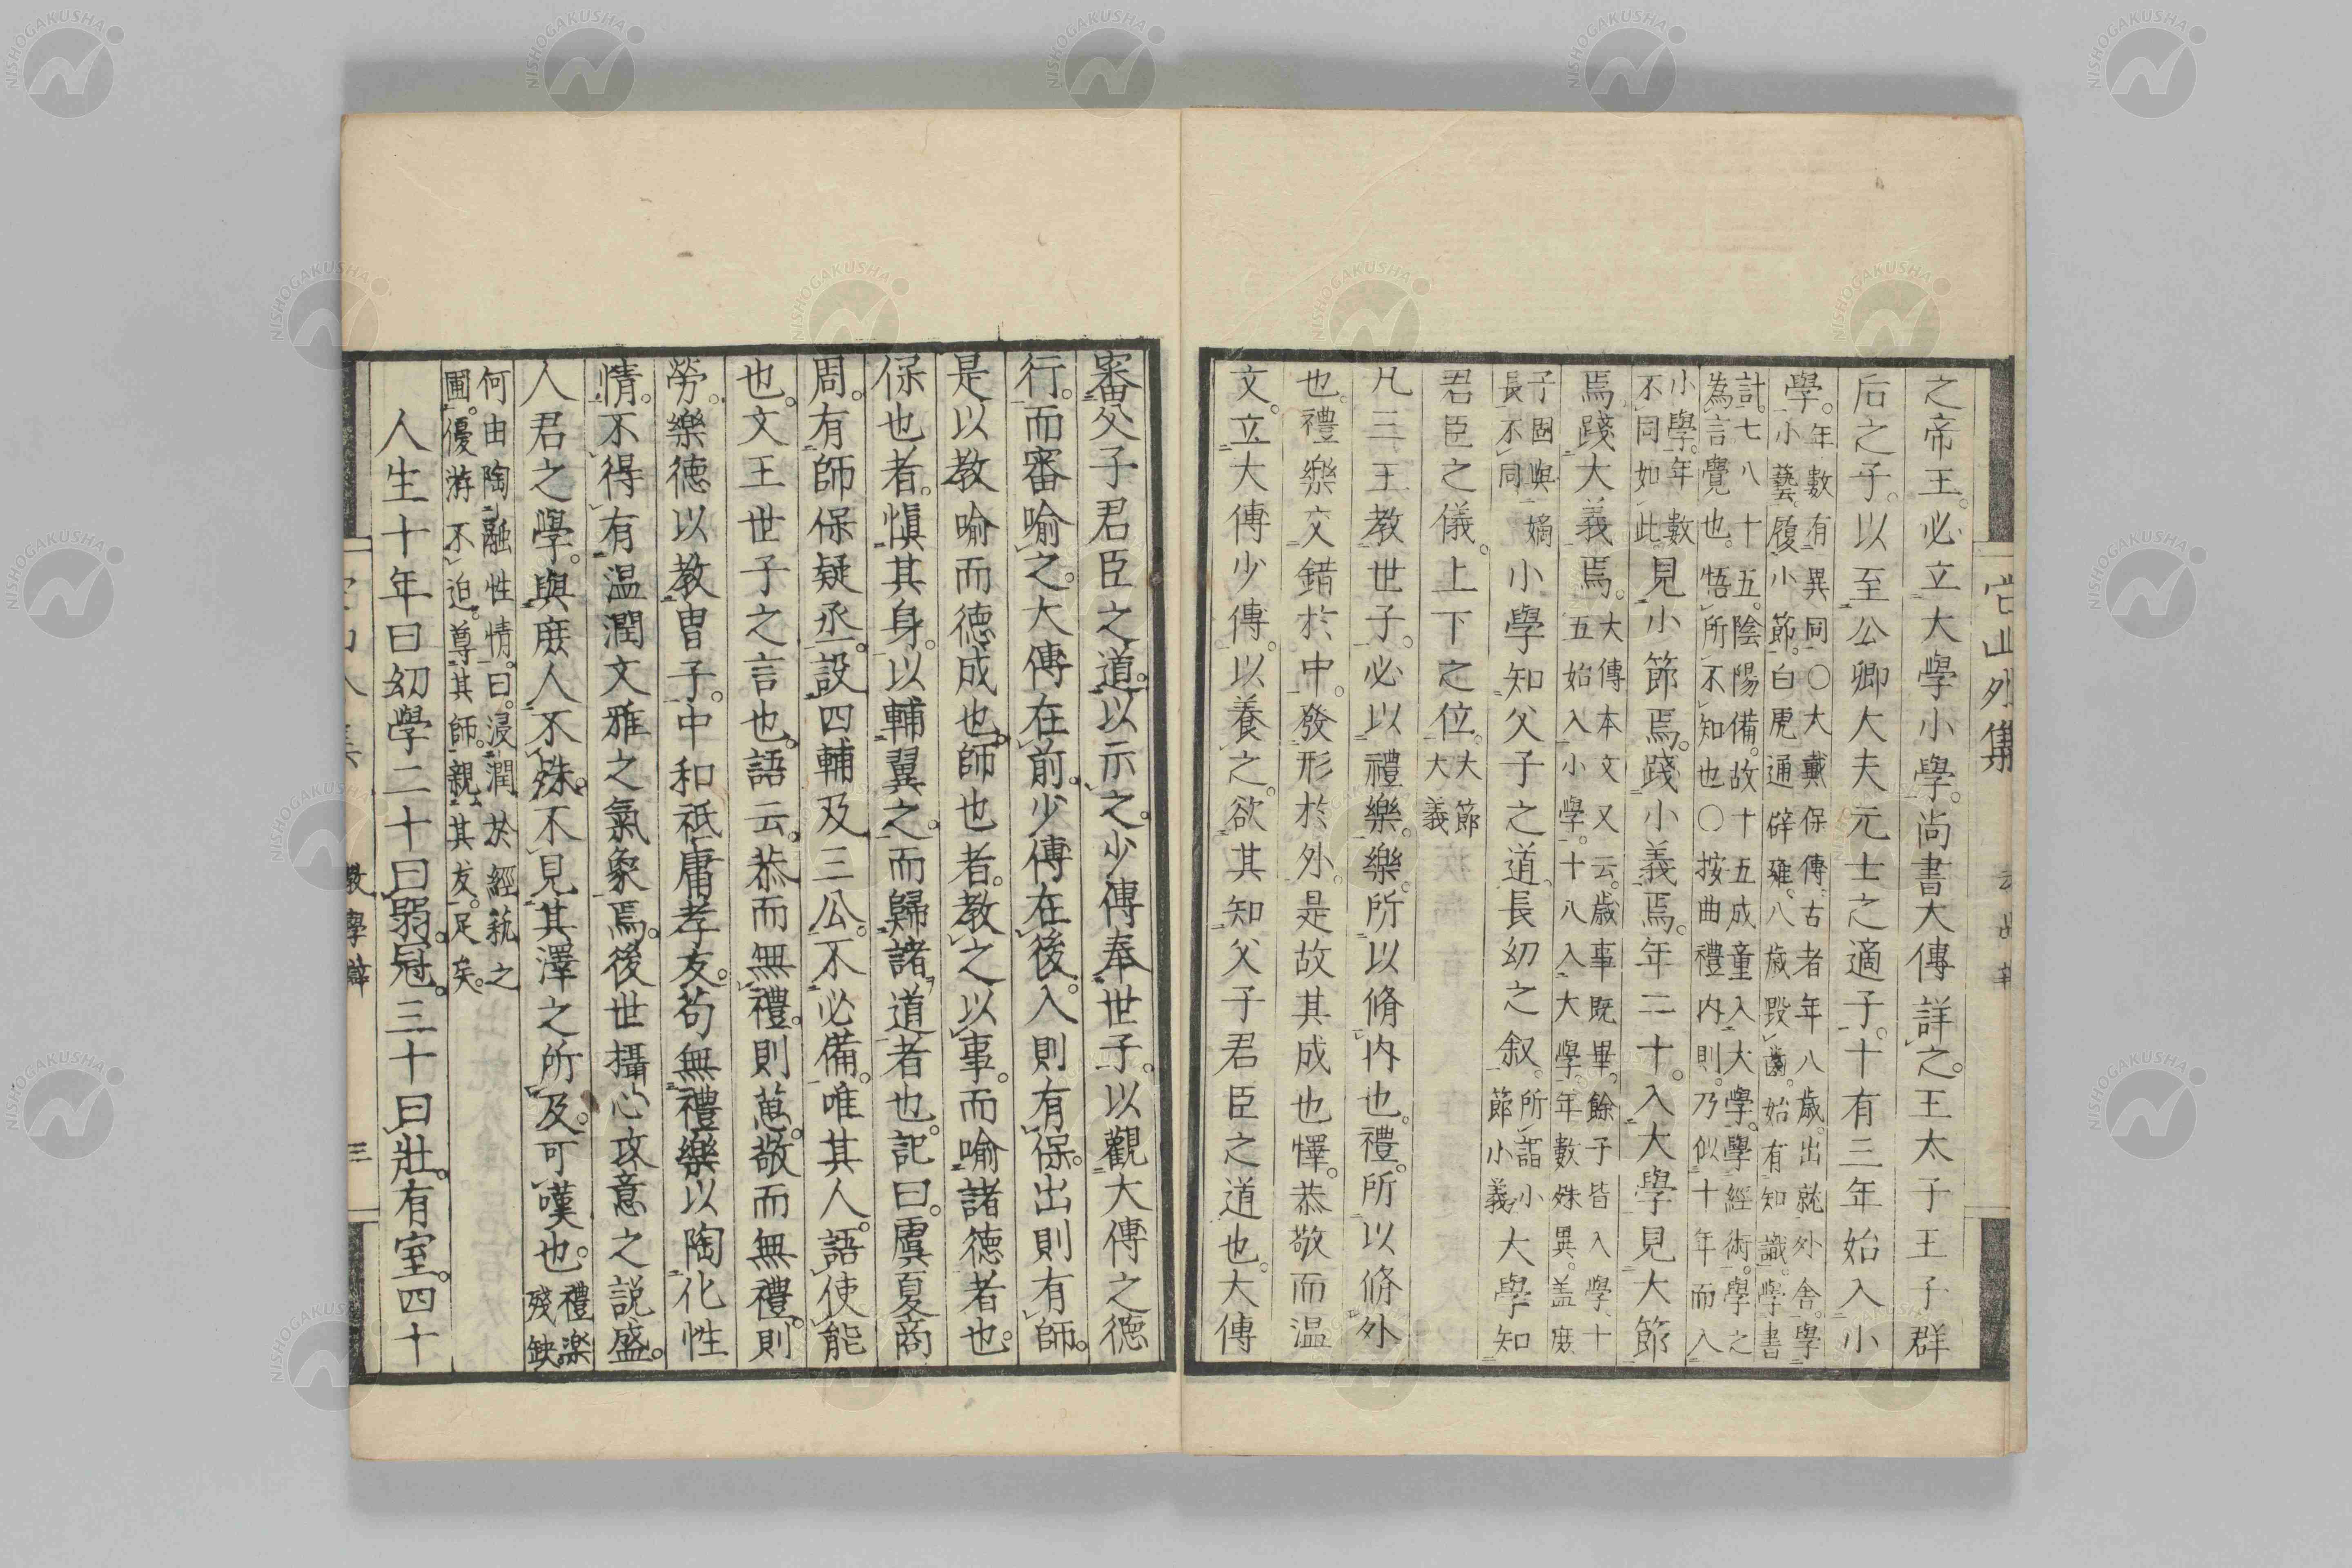 之帝王。必立大學小學。尚書大傳詳之。王太子王子群
后之子。以至公卿大夫元士之適子。十有三年始入小
學。年數有異同○大戴保傳。古者年八歲。出就外舍。學
小藝。履小節。白虎通辟雍。八歲毀齒。始有知識。學書
計。七八十五。陰陽備。故十五成童入大學。學經術。學之
為言覺也。悟所不知也○按曲禮内則。乃似十年而入
小學。年數
不同如此。見小節焉。踐小義焉。年二十。入大學見大節
焉踐大義焉。大傳本文又云。歲事既畢。餘子皆入學。十
五始入小學。十八入大學。年數殊異。蓋庶
子固與嫡
長不同小學知父子之道。長幼之叙。所謂小
節小義大學知
君臣之儀。上下之位。大節
大義
凡三王教世子。必以禮樂。樂。所以脩内也。禮。所以脩外
也。禮樂交錯於中。發形於外。是故其成也懌。恭敬而温
文。立大傳少傳。以養之。欲其知父子君臣之道也。大傳
審父子君臣之道。以示之。少傳奉世子。以觀大傳之德
行。而審喻之。大傳在前。少傳在後。入則有保。出則有師。
是以教喻而德成也。師也者。教之以事。而喻諸德者也。
保也者。愼其身。以輔翼之。而歸諸道者也。記曰。虞夏商
周。有師保疑丞。設四輔及三公。不必備。唯其人。語使能
也。文王世子之言也。語云。恭而無禮。則葸。敬而無禮。則
勞。樂德以教冑子。中和祗庸孝友。苟無禮樂以陶化性
情。不得有温潤文雅之氣象焉。後世攝心攻意之説盛。
人君之學。與庶人不殊。不見其澤之所及。可嘆也。禮楽
殘缺。
何由陶融性情。曰。浸潤於經藝之
圃。優游不迫。尊其師。親其友。足矣。
人生十年曰幼學二十曰弱冠。三十曰壯。有室。四十
教學辯
三